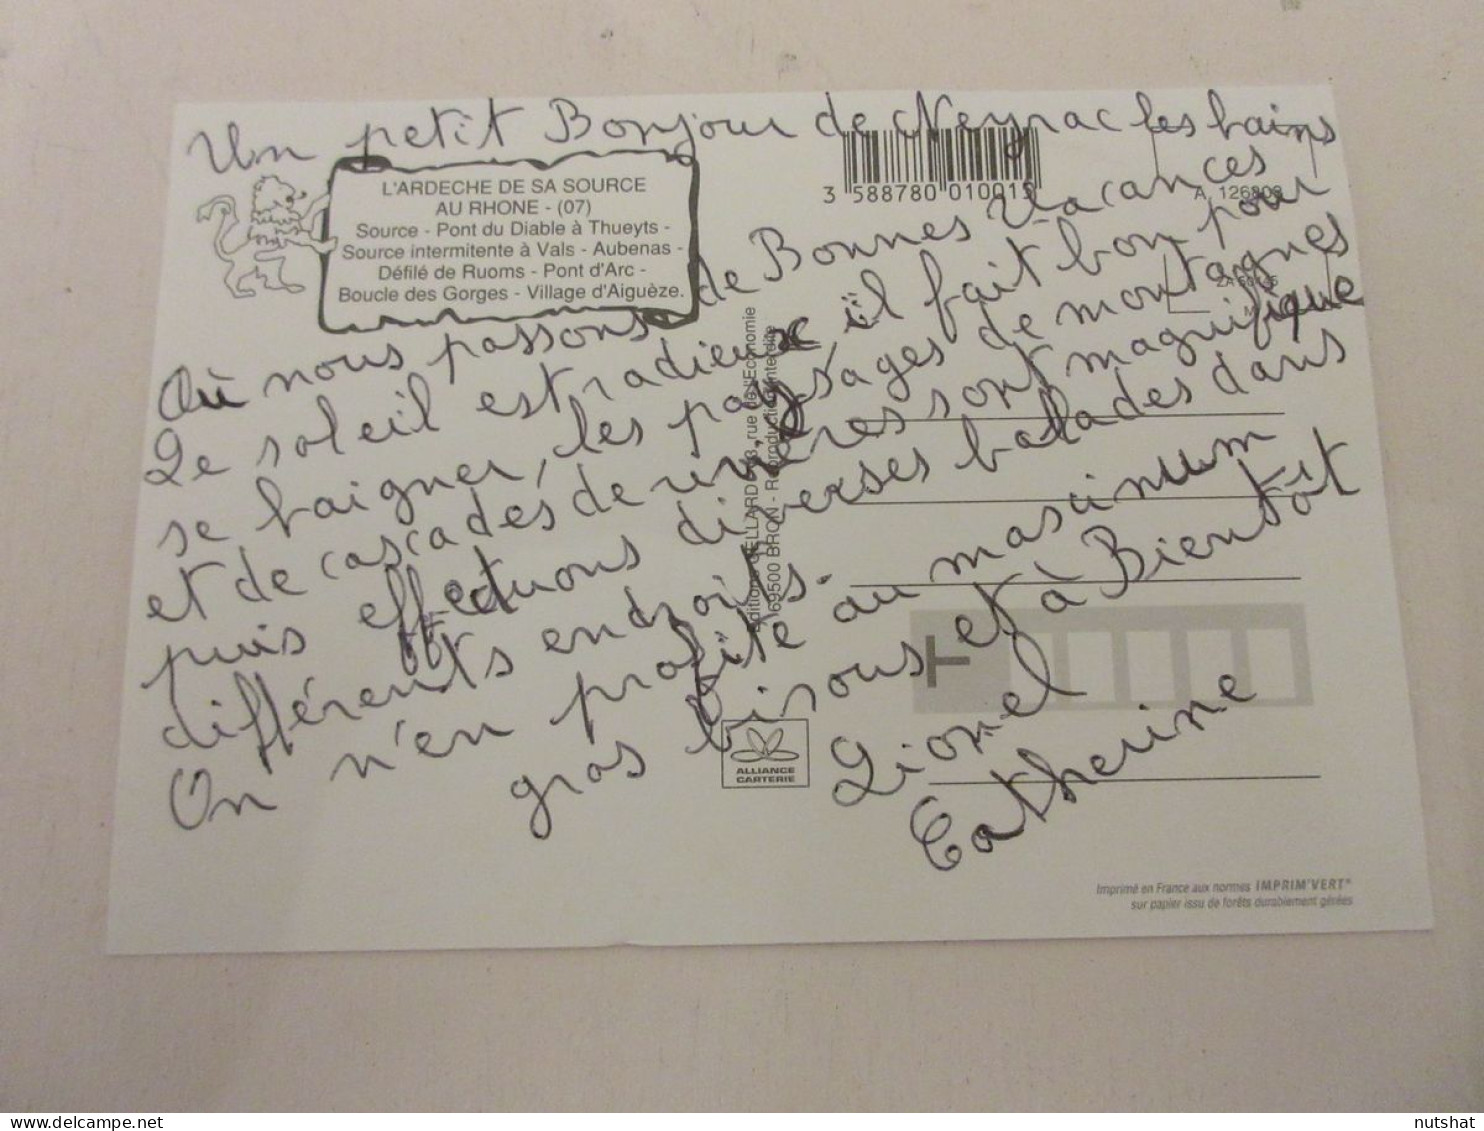 Un petit Bonjour de Neyrac les bains
Où nous passons de Bonnes Vacances
Le soleil est radieux, il fait bon pour
se baigner, les paysages de montagnes
et de cascades de rivières sont magnifique
puis effectuons diverses balades dans
différents endroits.
On n'en profite au maxinum
gros bisous et à Bientôt
Lionel
Catherine
L'ARDECHE DE SA SOURCE
AU RHONE - (07)
Source - Pont du Diable à Thueyts -
Source intermitente à Vals - Aubenas -
Défilé de Ruoms - Pont d'Arc -
Boucle des Gorges - Village d'Aiguèze.
3 588780 010015
A 126808
rue de l'Economie
69500 BRON - Reproduction interdite
T
ALLIANCE
CARTERIE
Imprimé en France aux normes IMPRIM'VERT®
sur papier issu de forêts durablement gérées
delcampe.net
nutshat